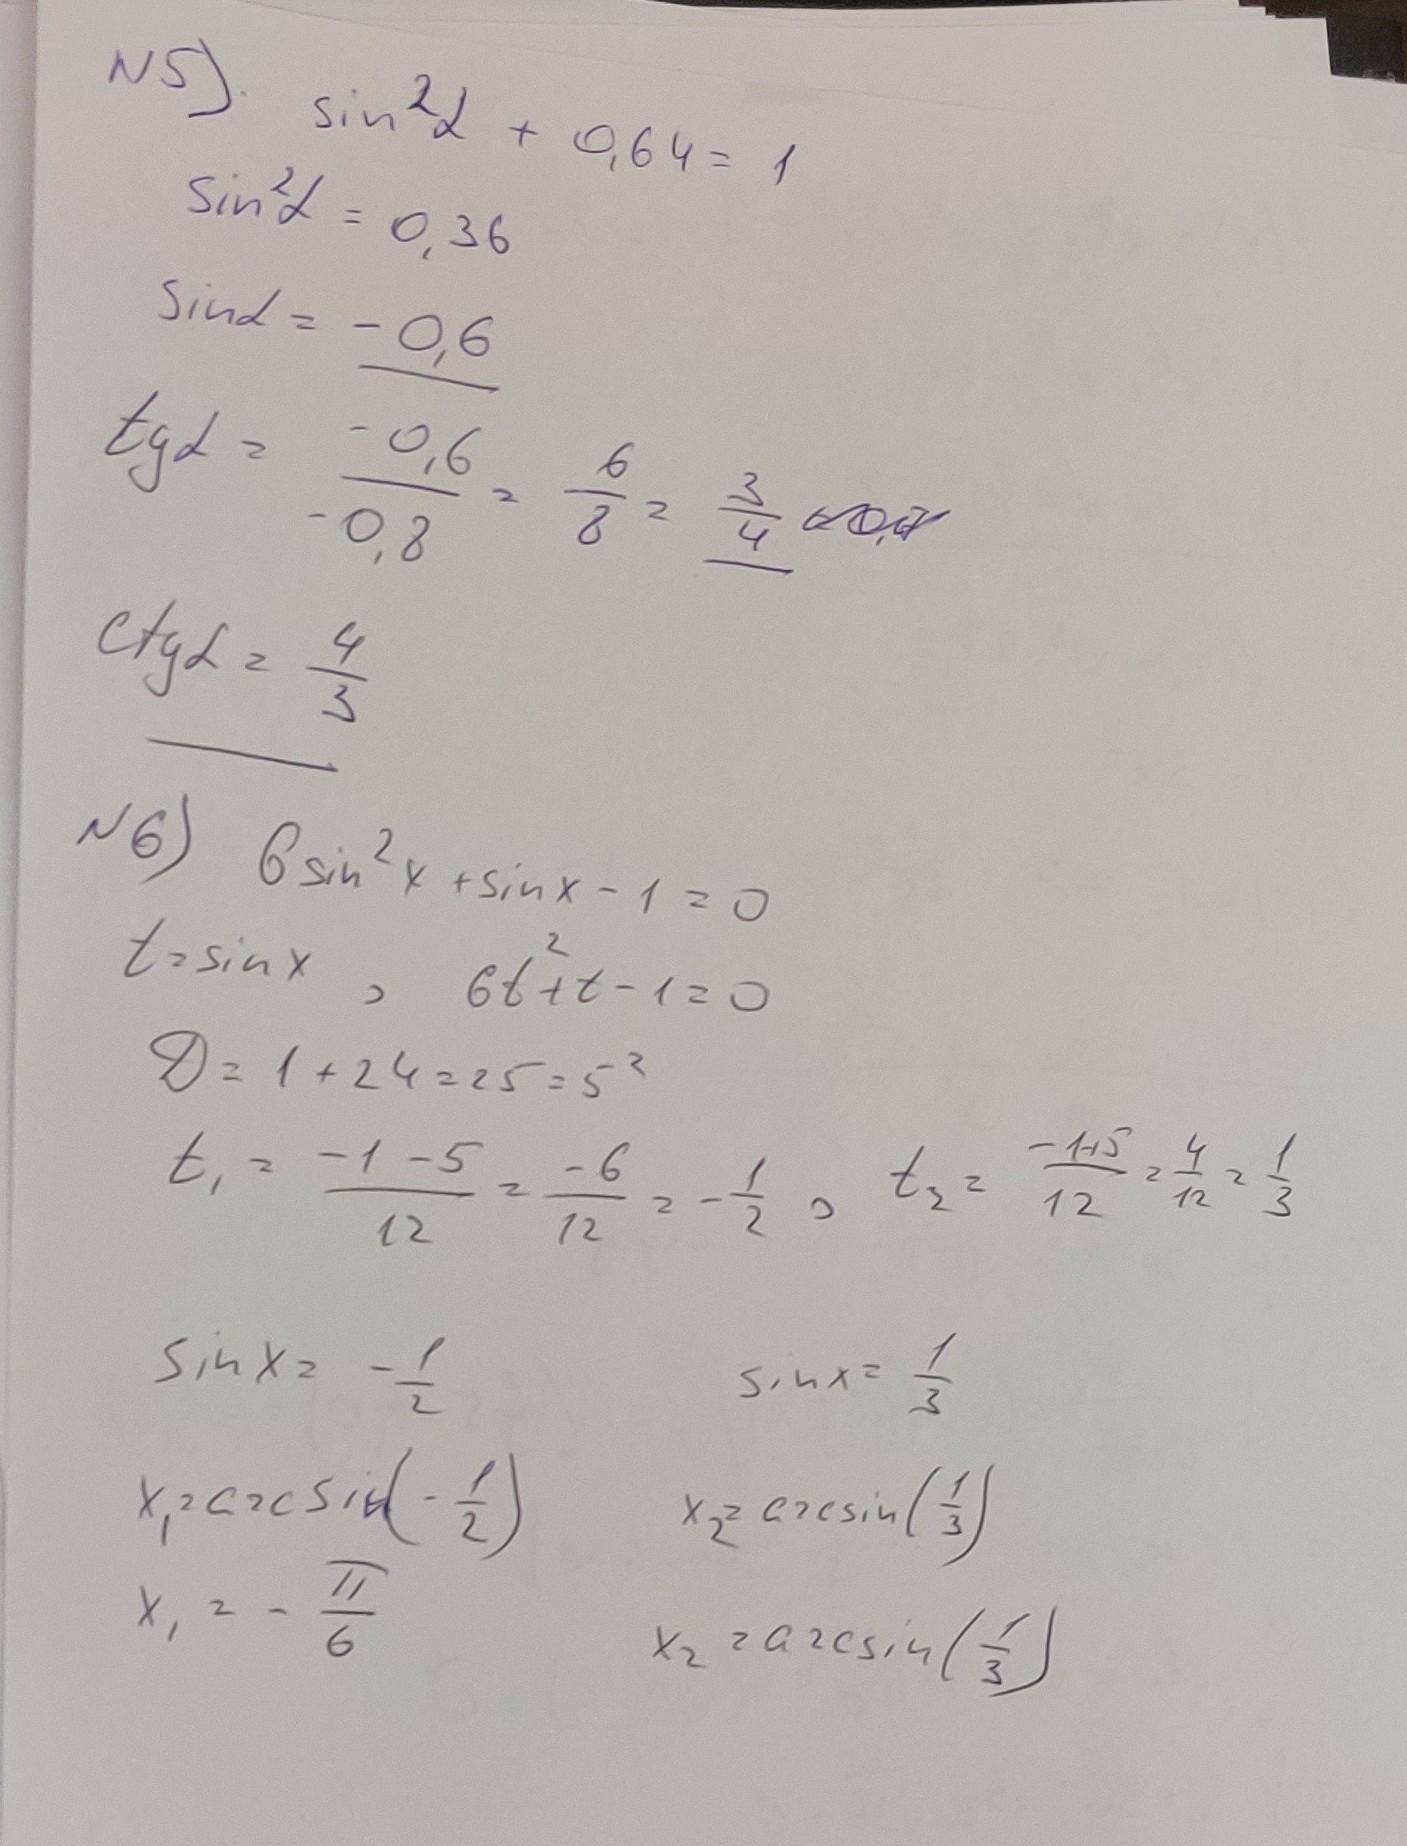 N5). sin²α + 0,64 = 1
sin²α = 0,36
sinα = -0,6
tgα = -0,6/-0,8 = 6/8 = 3/4
ctgα = 4/3
N6) 6sin²x + sinx - 1 = 0
t = sinx, 6t² + t - 1 = 0
D = 1 + 24 = 25 = 5²
t₁ = -1-5/12 = -6/12 = -1/2, t₂ = -1+5/12 = 4/12 = 1/3
sinx = -1/2 sinx = 1/3
x₁ = arcsin(-1/2) x₂ = arcsin(1/3)
x₁ = -π/6 x₂ = arcsin(1/3)